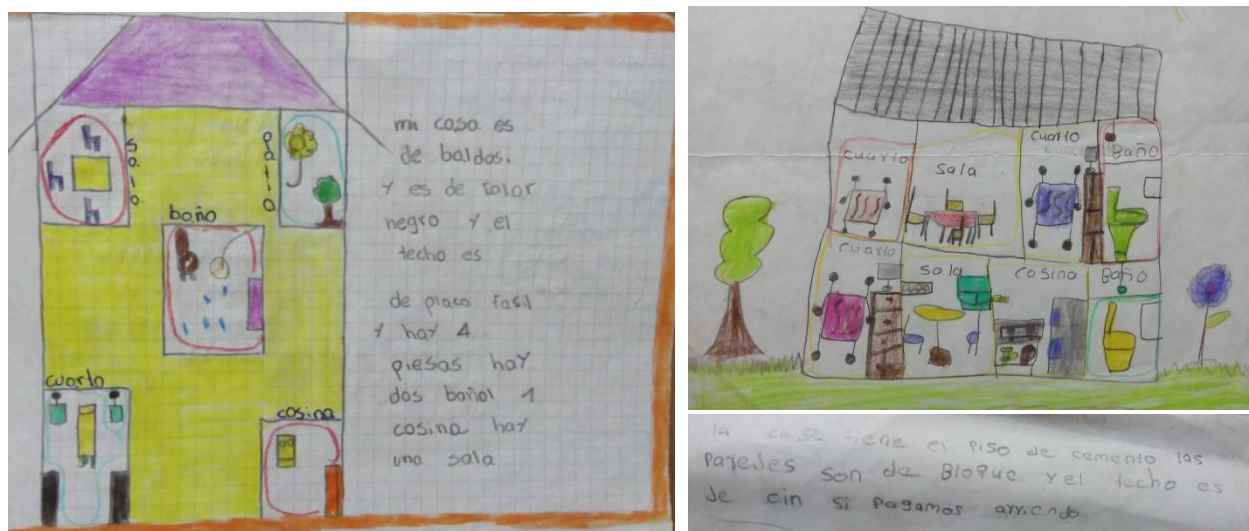 sala
patio
baño
cuarto
cosina
mi casa es
de baldos.
y es de color
negro y el
techo es
de placa facil
y hay 4
piesas hay
dos bañol 1
cosina hay
una sala
cuarto
sala
cuarto
Baño
cuarto
sala
cosina
Baño
la casa tiene el piso de cemento las
paredes son de Bloque y el techo es
de cin si pagamos arriendo